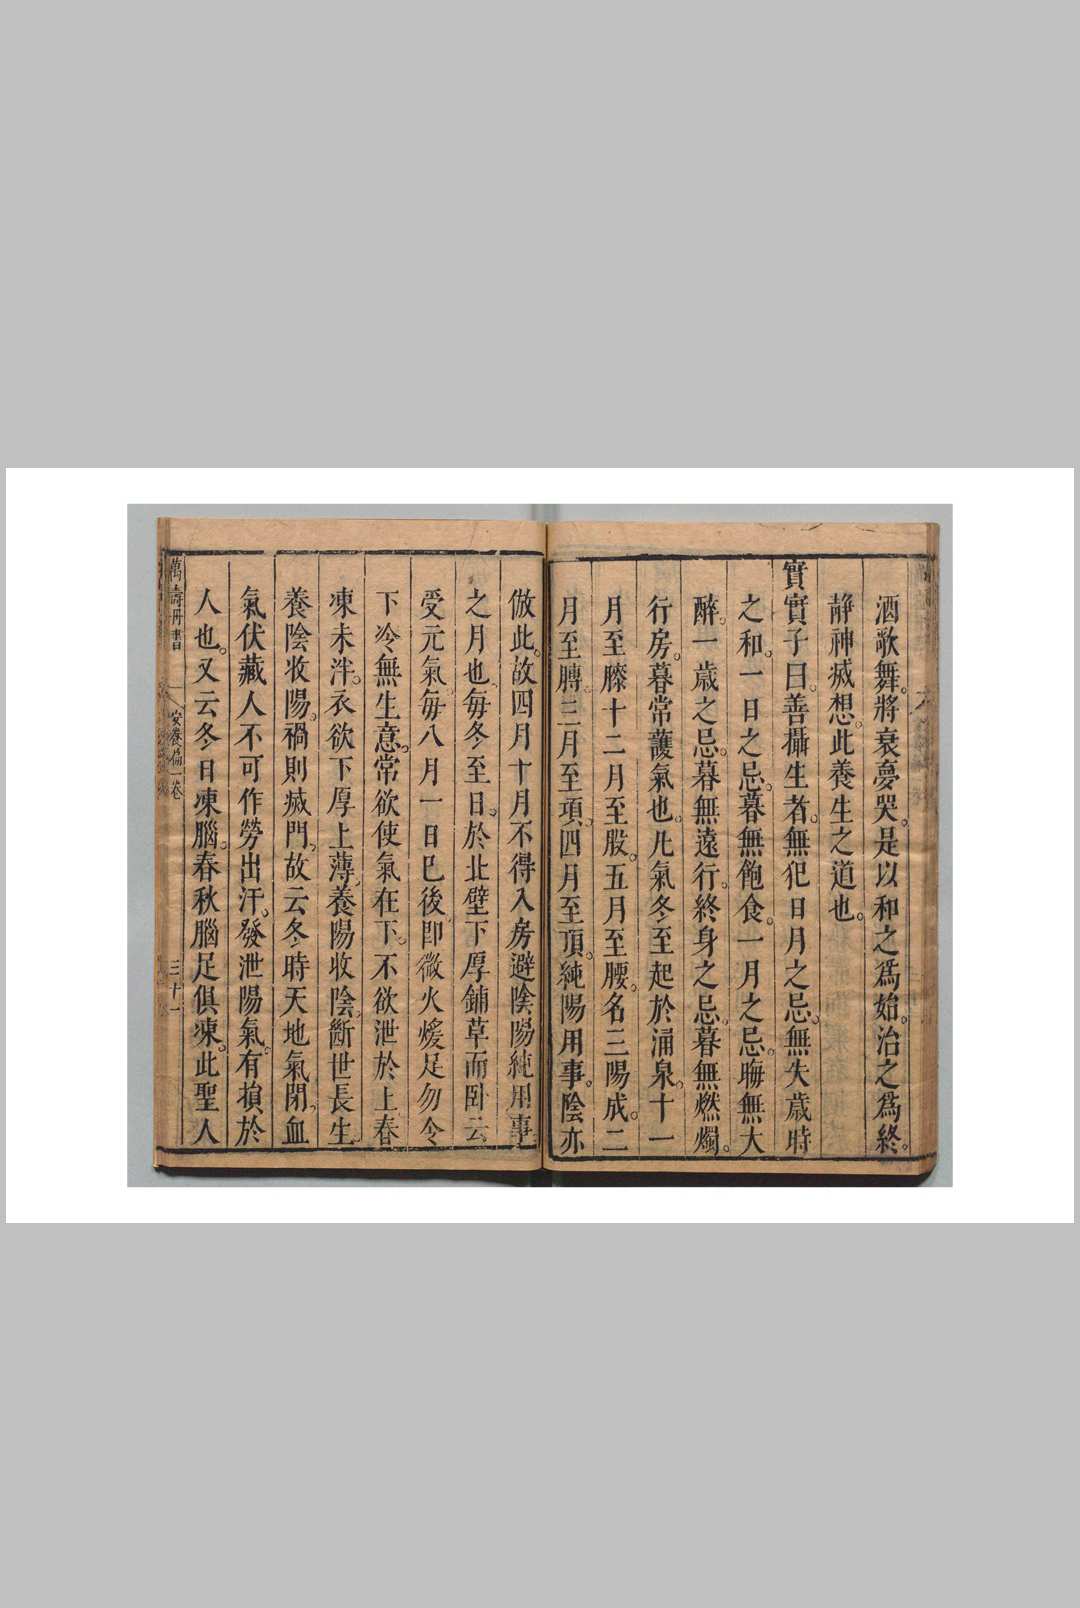 酒歌舞。將衰憂哭。是以和之為始。治之為終。
静神滅想。此養生之道也。
實實子曰。善攝生者。無犯日月之忌。無失歲時
之和。一日之忌。暮無飽食。一月之忌。晦無大
醉。一歲之忌。暮無遠行。終身之忌。暮無燃燭。
行房。暮常護氣也。凡氣冬至起於涌泉。十一
月至膝十二月至股。五月至腰。名三陽成。二
月至膊。三月至項。四月至頂。純陽用事。陰亦
倣此。故四月十月不得入房避陰陽純用事
之月也。每冬至日。於北壁下厚鋪草而卧云
受元氣。每八月一日已後。即微火煖足勿令
下冷無生意。常欲使氣在下。不欲泄於上春
凍未泮。衣欲下厚上薄。養陽收陰。斷世長生。
養陰收陽。禍則滅門。故云冬時天地氣閉。血
氣伏藏人不可作勞出汗。發泄陽氣。有損於
人也。又云冬日凍腦。春秋腦足俱凍。此聖人
萬壽丹書 安養偏一卷 三十一